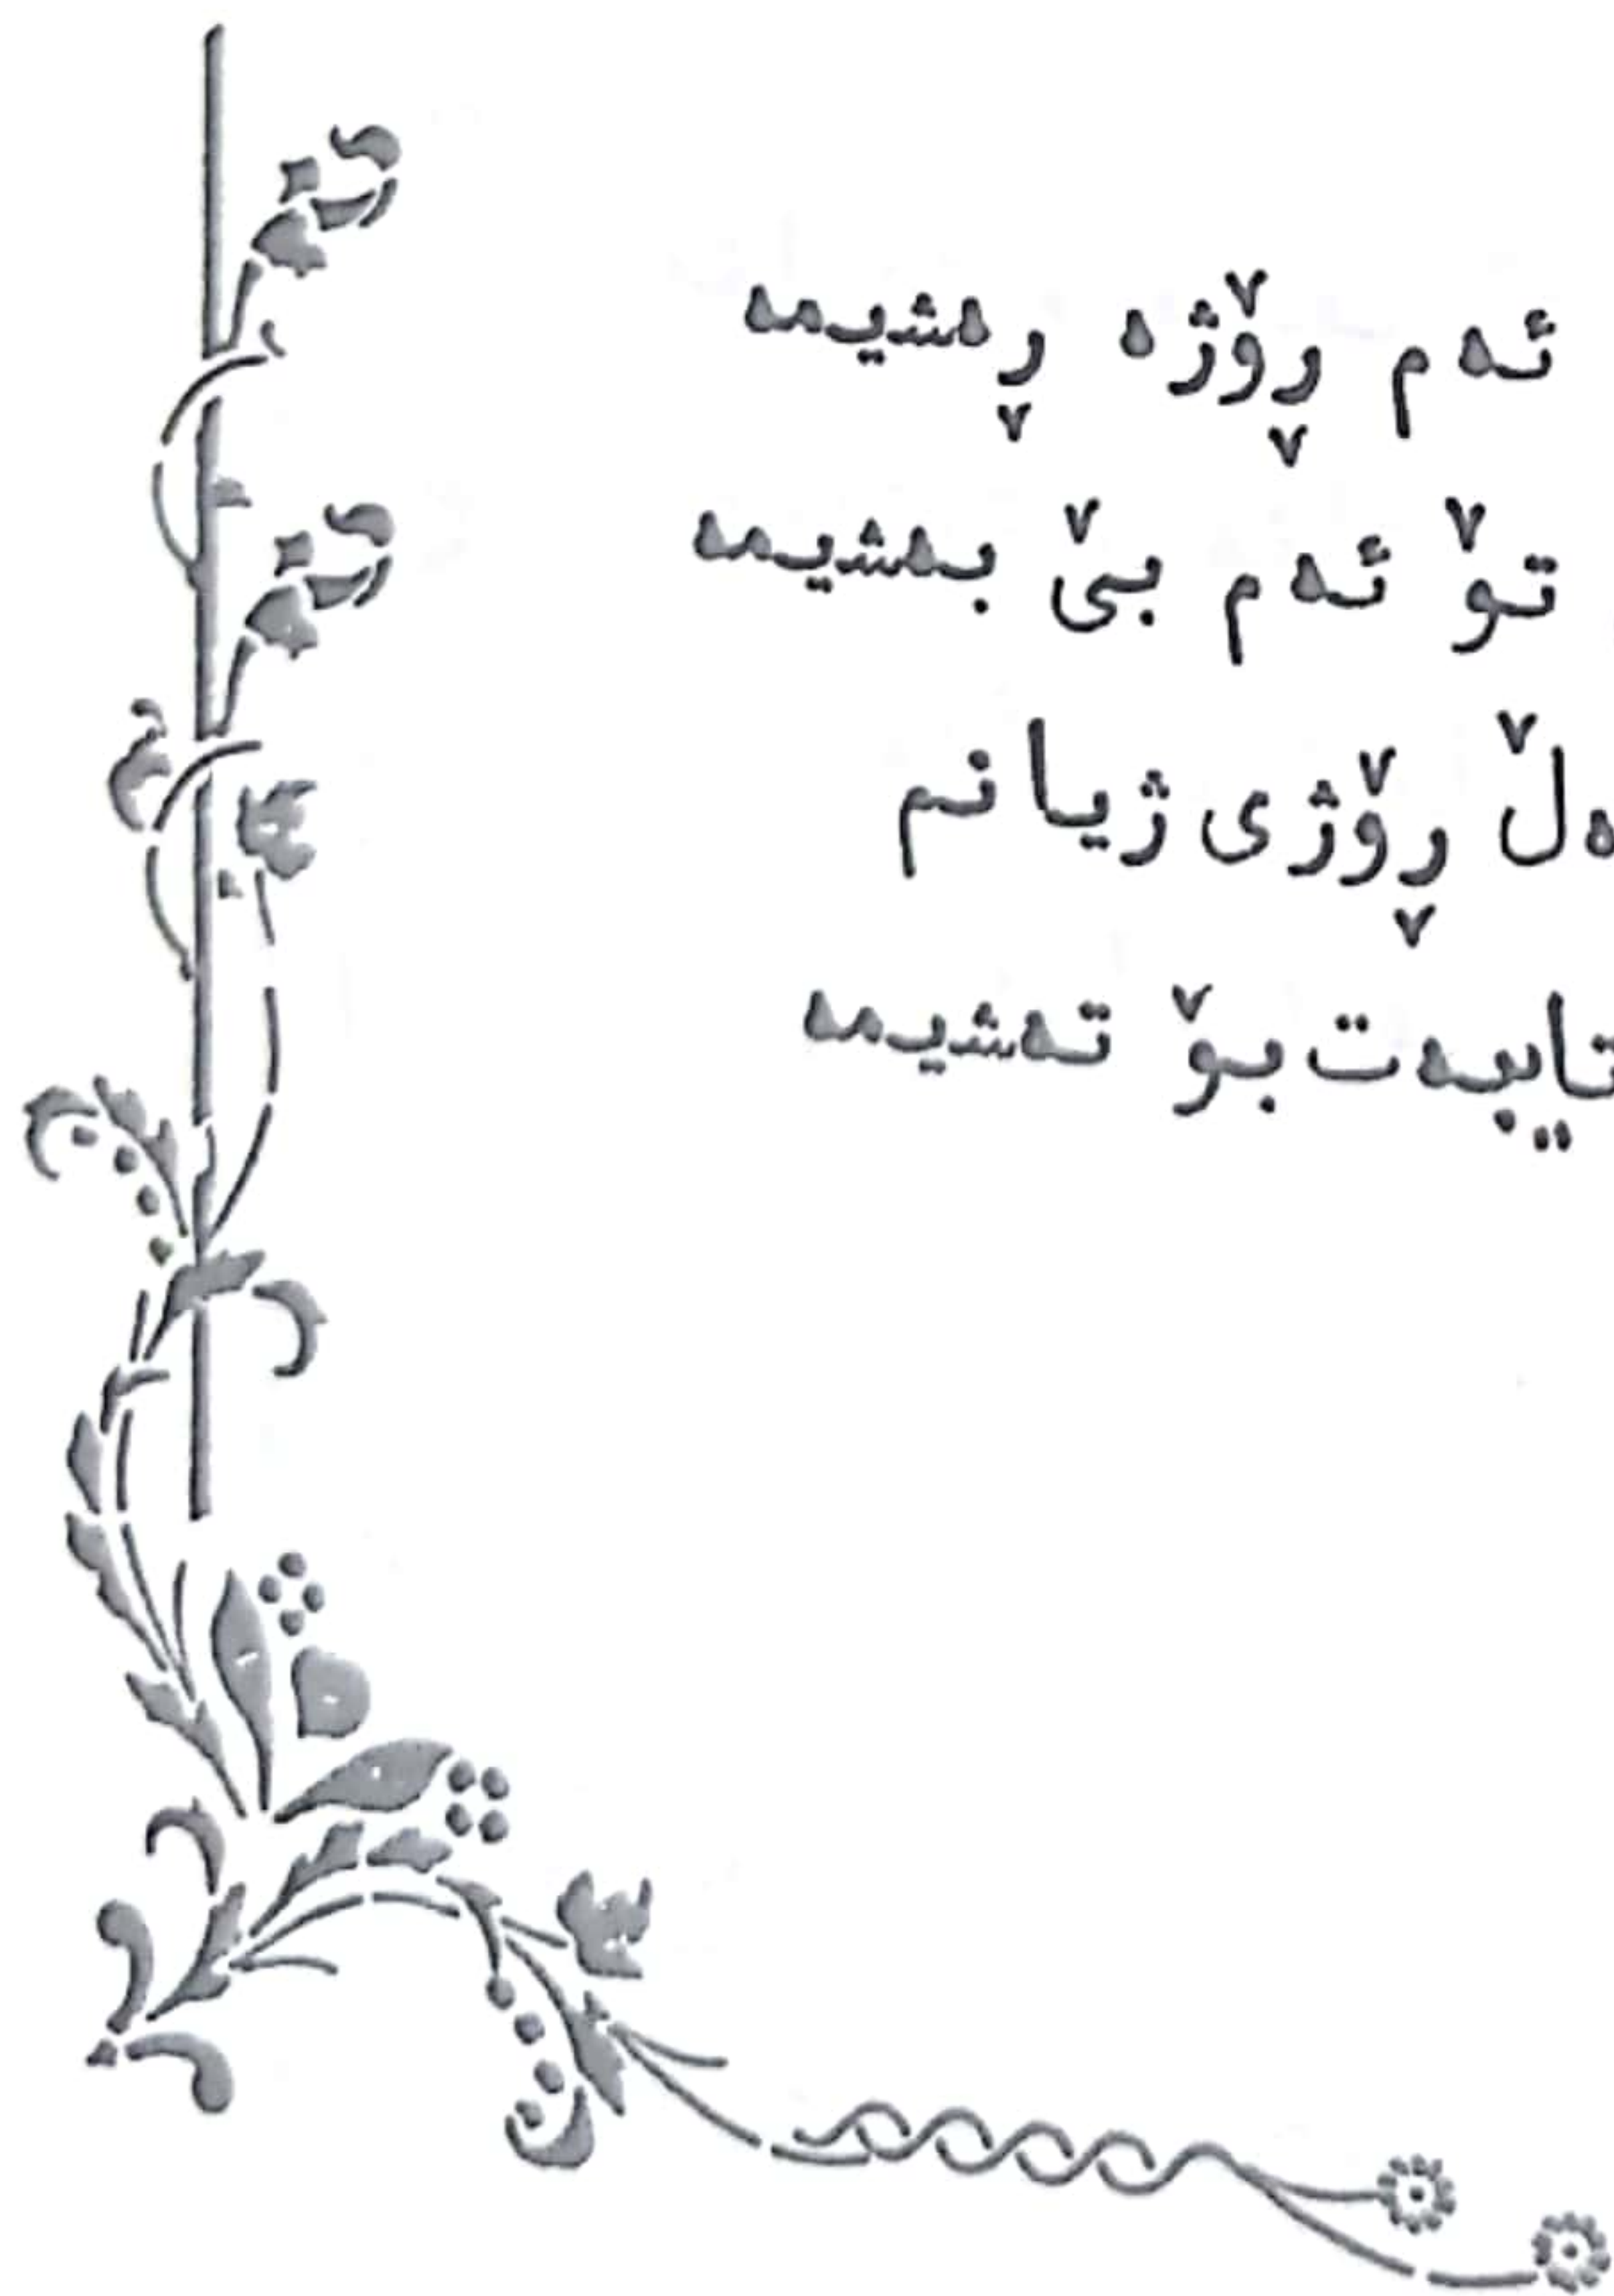 ئەم ڕۆژە ڕەشیمە
تۆ ئەم بێ بەشیمە
ڕۆژی ژیانم
تایبەت بۆ تەشیمە